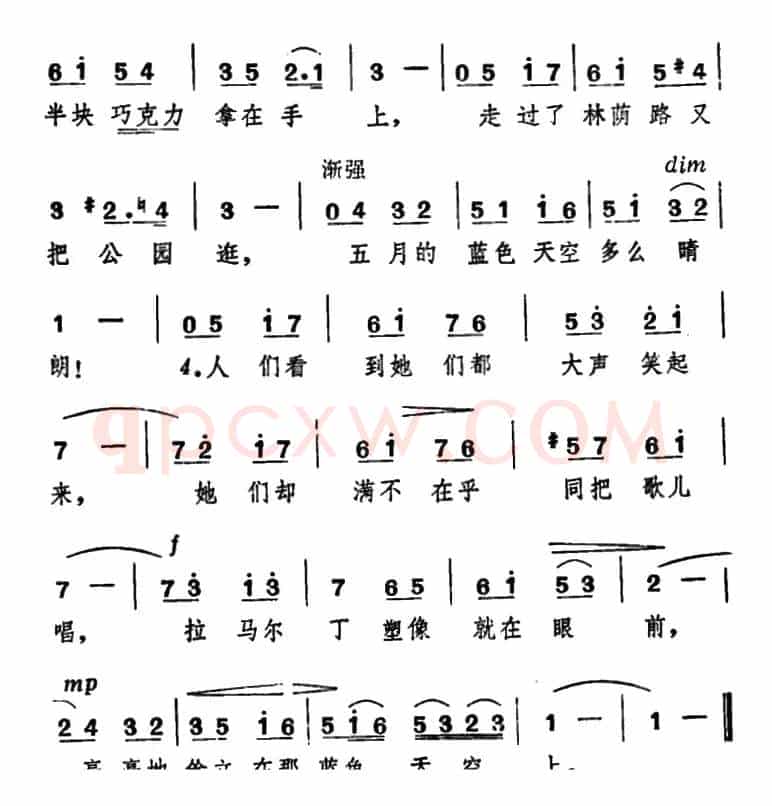 6 i 5 4 | 3 5 2.1 | 3 — | 0 5 i 7 | 6 i 5 #4 |
半块 巧克力 拿在 手 上， 走 过了 林荫 路又
渐强 dim
3 #2.♮4 | 3 — | 0 4 3 2 | 5 1 i 6 | 5 i 3 2 |
把 公 园 逛， 五 月的 蓝色 天空 多么 晴
1 — | 0 5 i 7 | 6 i 7 6 | 5 3̇ 2̇ i |
朗！ 4.人 们看 到她 们都 大声 笑起
qpcxw.COM
7 — | 7 2̇ i 7 | 6 i 7 6 | #5 7 6 i |
来， 她 们却 满不 在乎 同把 歌儿
f
7 — | 7 3̇ i 3̇ | 7 6 5 | 6 i 5 3 | 2 — |
唱， 拉 马尔 丁 塑像 就在 眼 前，
mp
2 4 3 2 | 3 5 i 6 | 5 i 6 5 3 2 3 | 1 — | 1 — ‖
在那 蓝色 天 空 上。